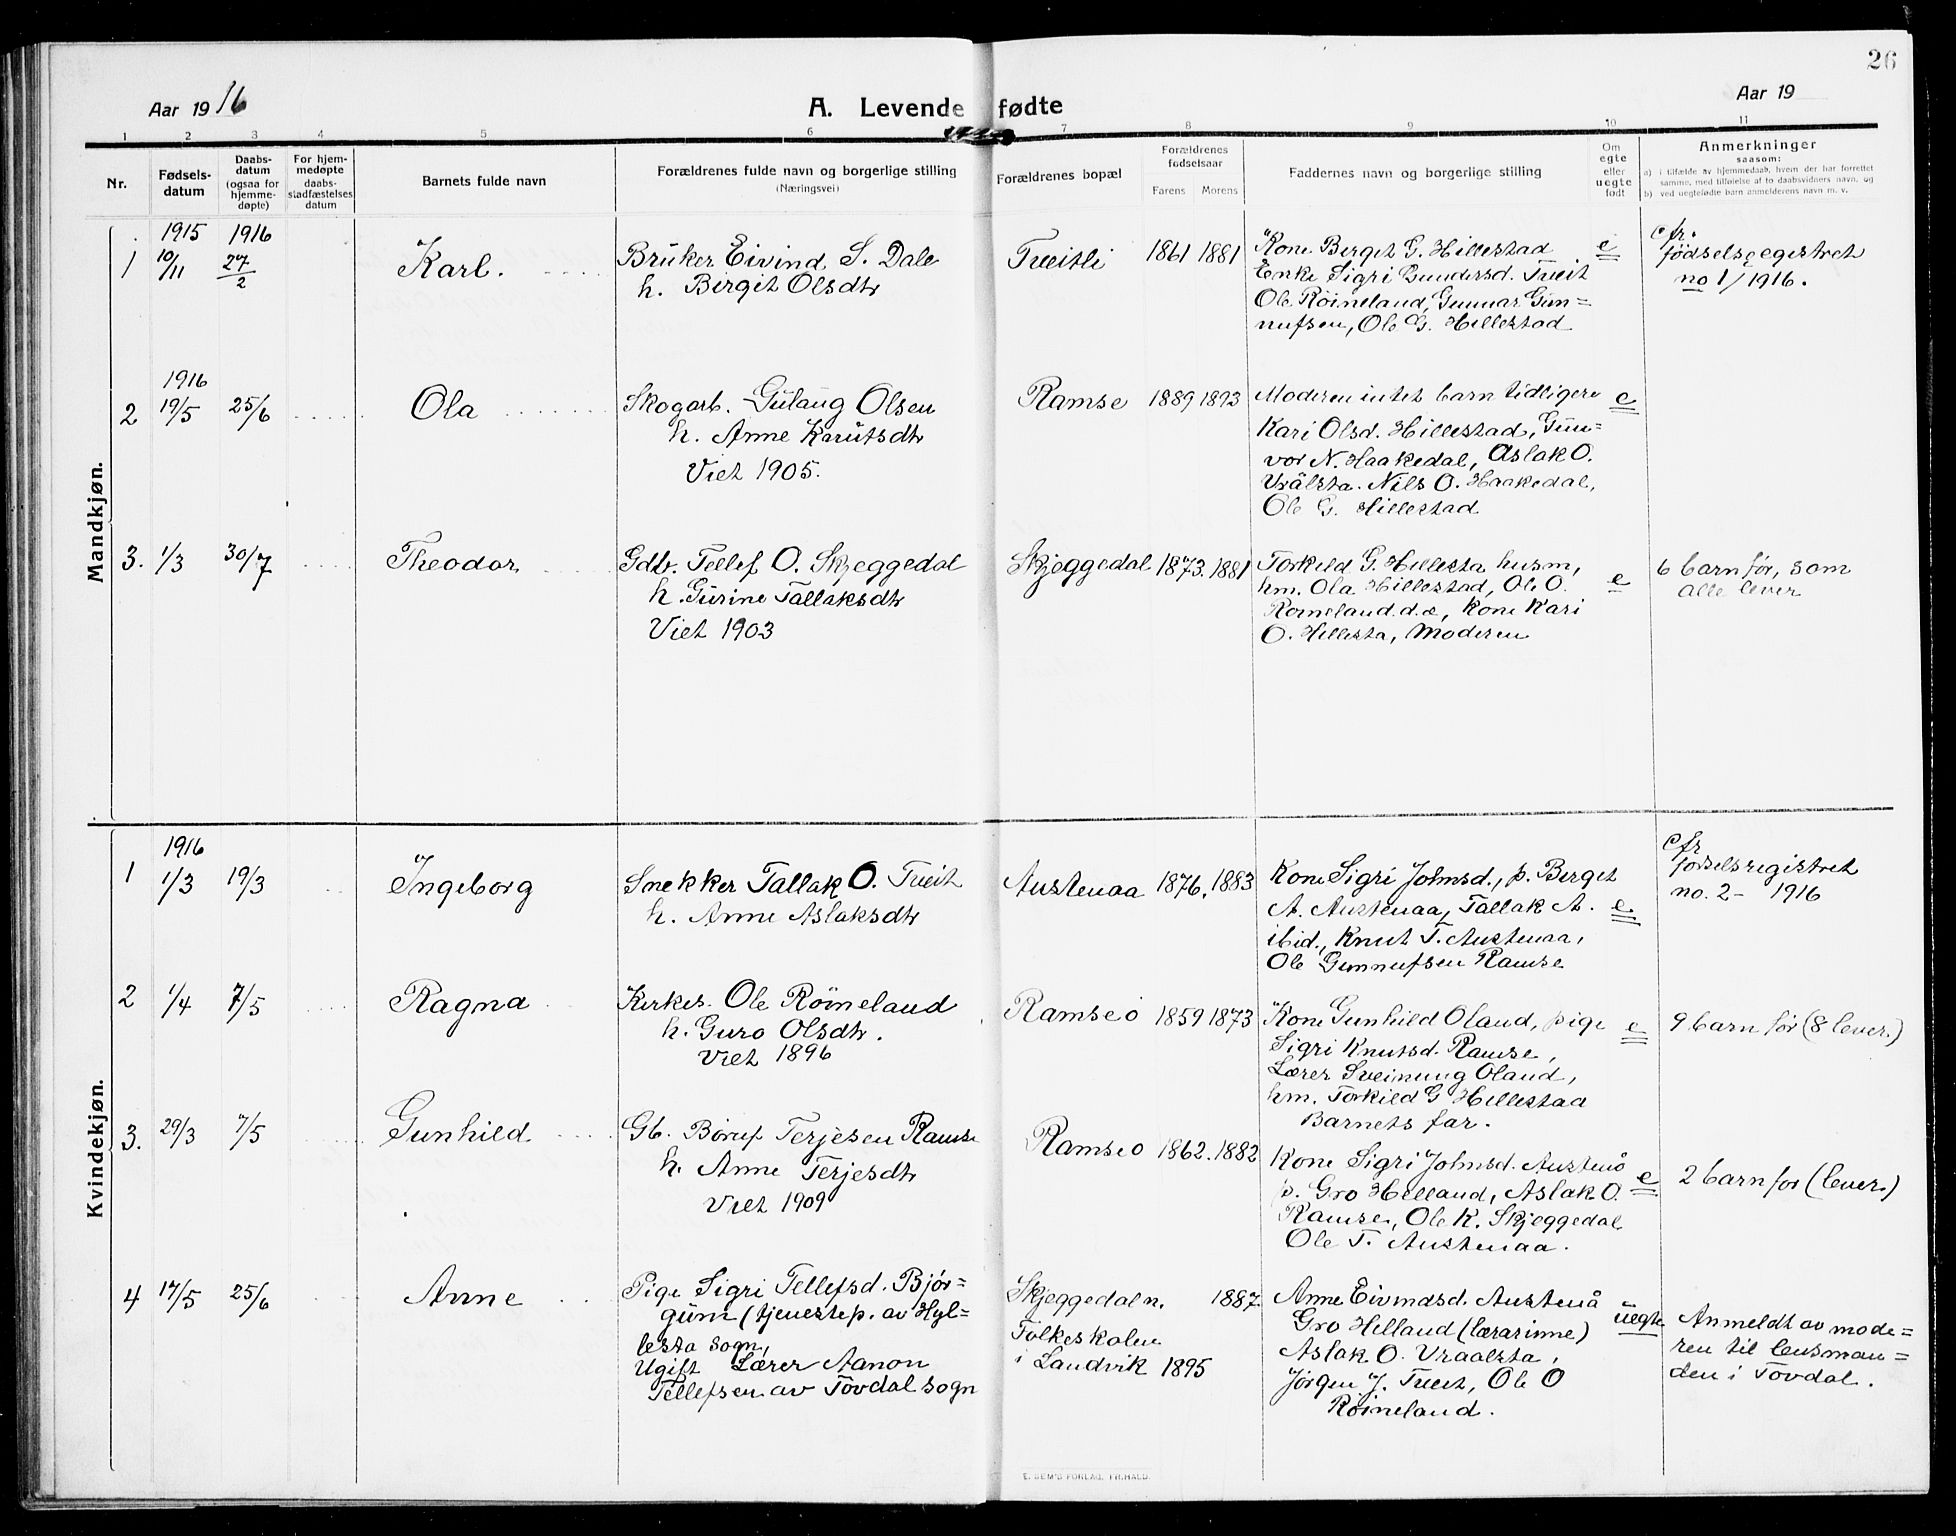 26
Aar 1916
A. Levende fødte
Aar 19
1 2 3 4 5 6 7 8 9 10 11
Nr.
Fødsels-
datum
Daabs-
datum
(ogsaa for
hjemme-
døpte)
For hjem-
medøpte
daabs-
stadfæstelses
datum
Barnets fulde navn
Forældrenes fulde navn og borgerlige stilling
(Næringsvei)
Forældrenes bopæl
Forældrenes
fødselsaar
Farens Morens
Faddernes navn og borgerlige stilling
Om
egte
eller
uegte
født
Anmerkninger
saasom:
a) i tilfælde av hjemmedaab, hvem der har forrettet
samme, med tilføielse af to daabsvidners navn, og
b) ved uegtefødte barn anmelderens navn m. v.
Mandkjøn.
1
1915
10/11
1916
27/2
Karl.
Bruker Eivind S. Dale
h. Birgit Olsdtr
Tveitli
1861 1881
Kone Berget G. Hillestad
Enke Sigri Gundersd. Tveit
Ole Röineland, Gunnar Gun=
nufsen, Ole G. Hillestad
e
cfr.
födselsregistret
no 1/1916.
2
1916
19/5
25/6
Ola
Skogarb. Gulaug Olsen
h. Anne Knutsdtr
Viet 1905.
Ramse
1889 1893
Moderen intet barn tidligere
Kari Olsd. Hillestad, Gun=
vor N. Haakedal, Aslak O.
Urålsta. Nils O. Haakedal,
Ole G. Hillestad
e
3.
1/3
30/7
Theodor
Gdb. Tellef O. Skjeggedal
h. Gurine Tallaksdtr
Viet 1903
Skjeggedal
1873. 1881
Torkild G. Hillesta husm,
hm. Ola Hillestad, Ole O.
Roineland. d.e, Kone Kari
O. Hillesta, Moderen
e
6 barn før, som
alle lever
Kvindekjøn.
1
1916
1/3
19/3
Ingeborg
Snekker Tallak O. Tveit
h. Anne Aslaksdtr
Austenaa
1876. 1883
Kone Sigri Johnsd., p. Berget
A. Austenaa, Tallak A.
ibid., Knut T. Austenaa,
Ole Gunnufsen Ramse
e
cfr
fodselsregistret
no. 2- 1916
2
1/4
7/5
Ragna
Kirkes. Ole Röineland
h. Guro Olsdtr.
Viet 1896
Ramseo
1859 1873
Kone Gunhild Oland, pige
Sigri Knutsd. Ramse,
Lærer Sveinung Oland,
hm. Torkild G Hillestaa
Barnets far.
e
9 barn før (8 lever.)
3.
29/3
7/5
Gunhild
Gb. Börup Terjesen Ramse
h. Anne Terjesdtr
Viet 1909
Ramseo
1862. 1882
Kone Sigri Johnsd. Austenå
p. Gro Hilland, Aslak O.
Ramse, Ole K. Skjeggedal
Ole T. Austenaa.
e
2 barn for (lever.)
4
17/5
25/6
Anne
Pige Sigri Tellefsd. Bjór=
gum (tjenestep. av Hyl=
lesta sogn,
Ugift Lærer Aanon
Tellefsen av Tovdal sogn
Skjeggedal n.
Folkeskolen
i Landvik
1887
1895
Anne Eivindsd. Austenå
Gro Hilland (lærarinne)
Aslak O. Vraalsta,
Jörgen J. Tveit, Ole O
Röineland.
uegte
Anmeldt av mode=
ren til lensman=
den i Tovdal.
E. SEM'S FORLAG, FR.HALD.